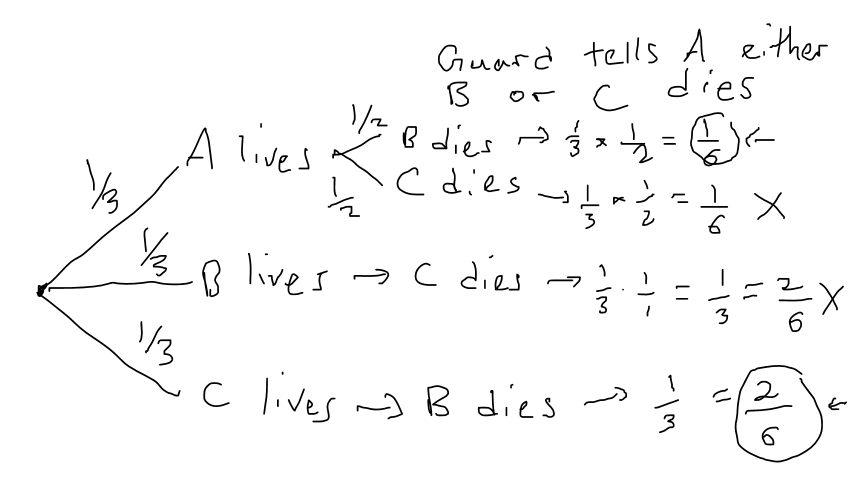 Guard tells A either
B or C dies
1/3 A lives 1/2 B dies → 1/3 × 1/2 = 1/6 ←
1/2 C dies → 1/3 · 1/2 = 1/6 X
1/3 B lives → C dies → 1/3 · 1/1 = 1/3 = 2/6 X
1/3 C lives → B dies → 1/3 = 2/6 ←